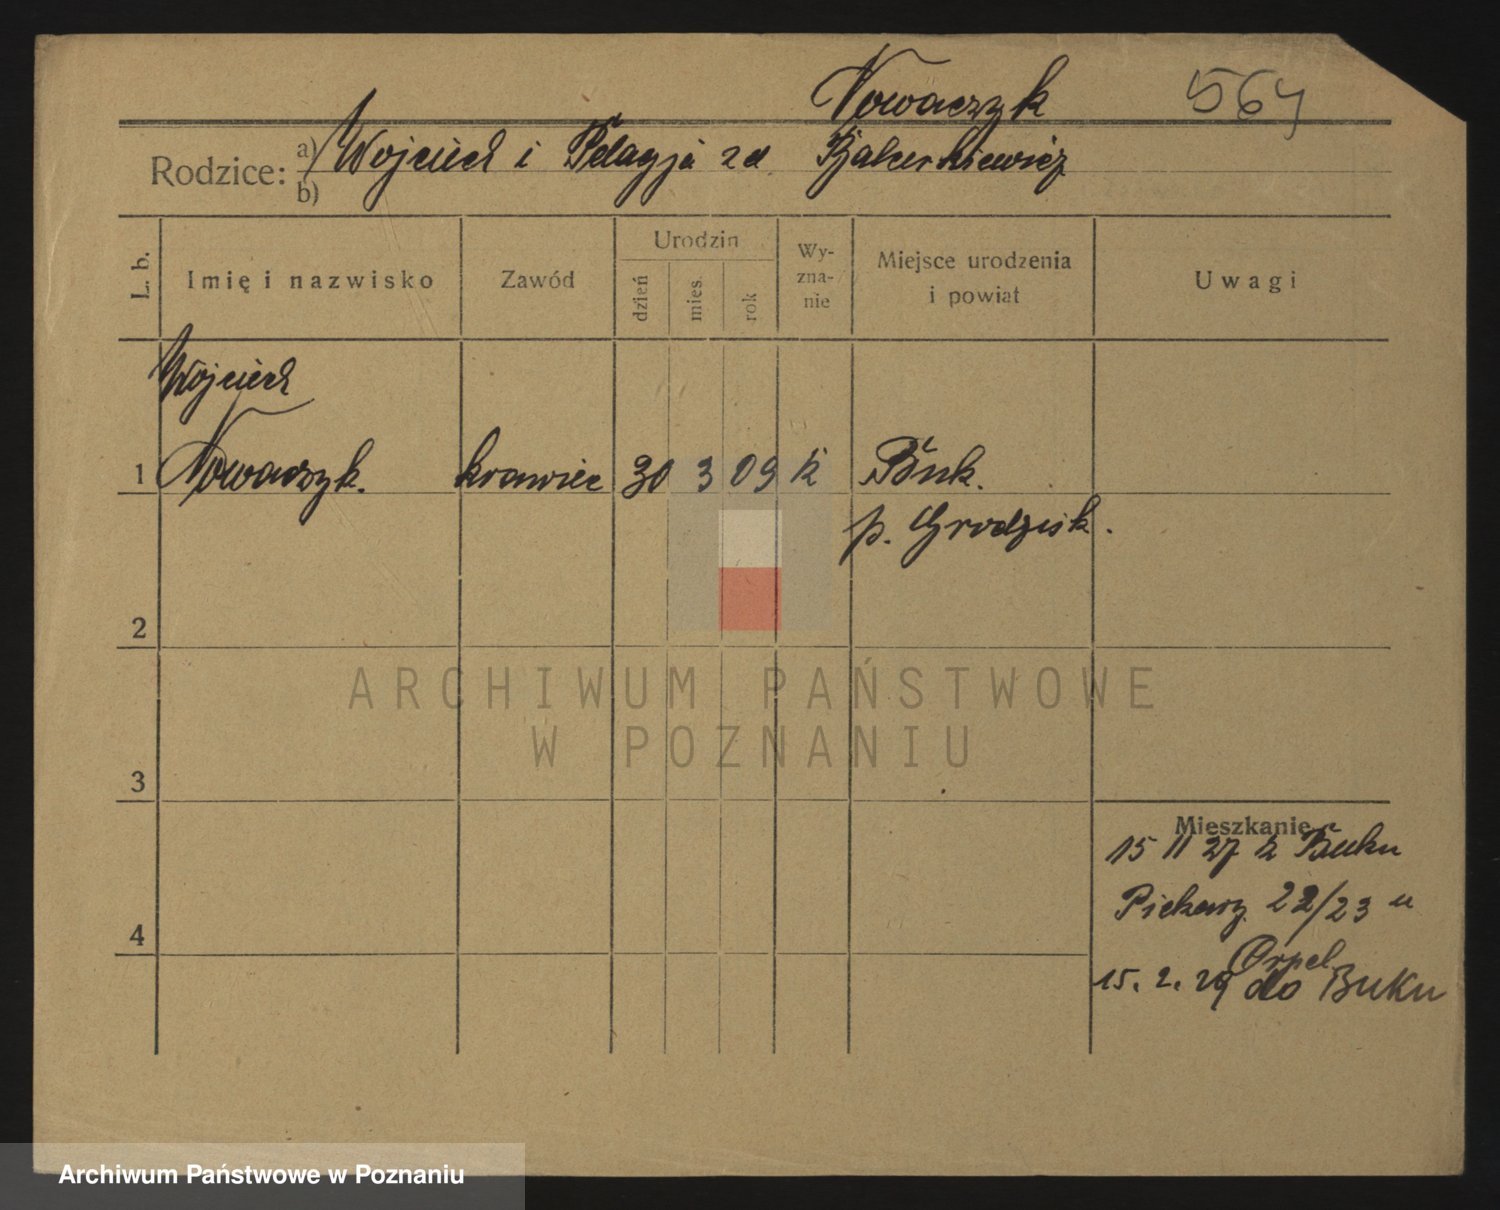 Nowaczyk 564
Rodzice: a) Wojciech i Pelagja zd.
b)
L. b. Imię i nazwisko Zawód Urodzin dzień mies. rok Wy-zna-nie Miejsce urodzenia i powiat Uwagi
Wojciech
1 Nowaczyk. krawiec 30 3 09 k Buk.
p. Grodzisk.
2
ARCHIWUM PAŃSTWOWE
W POZNANIU
3
Mieszkanie
15 11 27 z Buku
Piekary 22/23 u
Orpel
4
15. 2. 29 do Buku
Archiwum Państwowe w Poznaniu